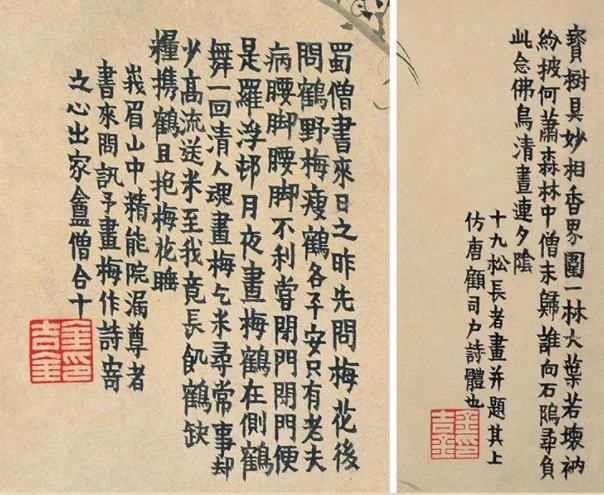 蜀僧書來日之昨先問梅花後
問鶴野梅瘦鶴各平安只有老夫
病腰脚腰脚不利嘗閉門閉門便
是羅浮邨月夜畫梅鶴在側鶴
舞一回清人魂畫梅乞米尋常事却
少高流送米至我竟長飢鶴缺
糧携鶴且抱梅花睡
峩眉山中精能院漏尊者
書來問訊予畫梅作詩寄
之心出家盦僧合十
金吉金印
寶樹具妙相香界圍一林大葉若壞衲
紛披何蕭森林中僧未歸誰向石隖尋負
此念佛鳥清晝連夕陰
十九松長者畫并題其上
仿唐顧司户詩體也
金吉金印